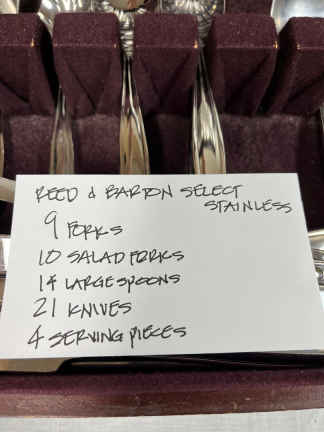 REED & BARTON SELECT
STAINLESS
9 FORKS
10 SALAD FORKS
14 LARGE SPOONS
21 KNIVES
4 SERVING PIECES